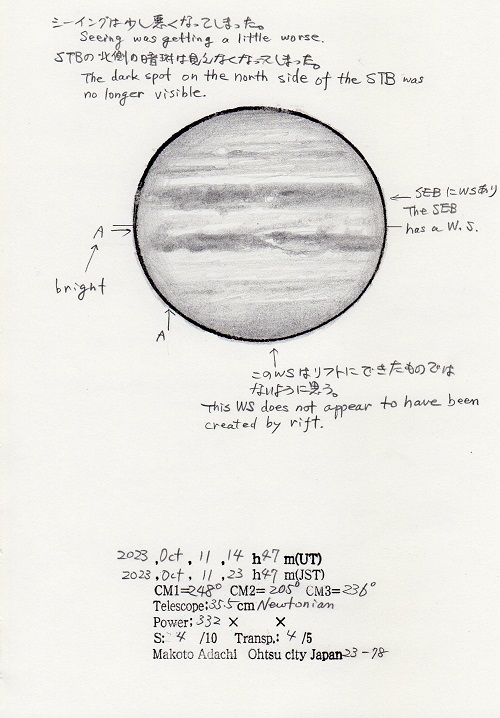 シーイングは少し悪くなってしまった。
Seeing was getting a little worse.
STBの北側の暗斑は見えなくなってしまった。
The dark spot on the north side of the STB was
no longer visible.
← SEBにWSあり
The SEB
has a W.S.
A ⇒
bright
A
このWSはリフトにできたものでは
ないように思う。
This WS does not appear to have been
created by rift.
2023, Oct, 11, 14 h47 m(UT)
2023, Oct, 11, 23 h47 m(JST)
CM1=248° CM2=205° CM3=236°
Telescope:35.5cm Newtonian
Power:332 × ×
S: 4 /10 Transp.: 4 /5
Makoto Adachi Ohtsu city Japan 23-78